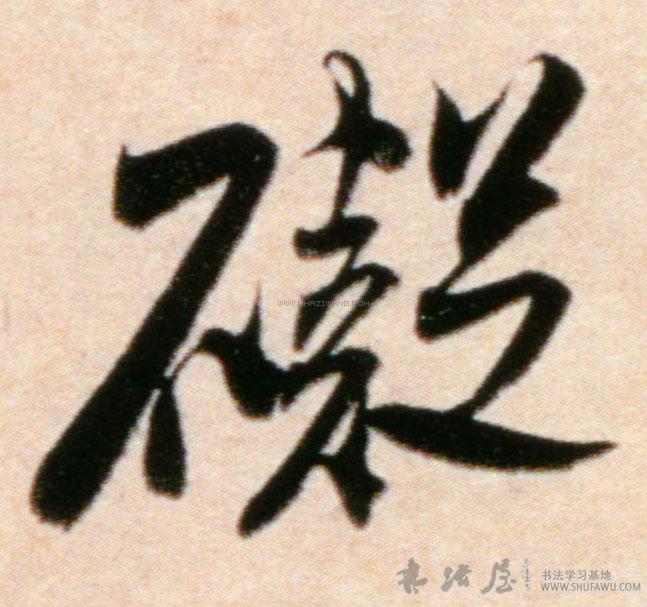 礙
WWW.CHAZIWANG.COM
书法屋 书法学习基地
WWW.SHUFAWU.COM